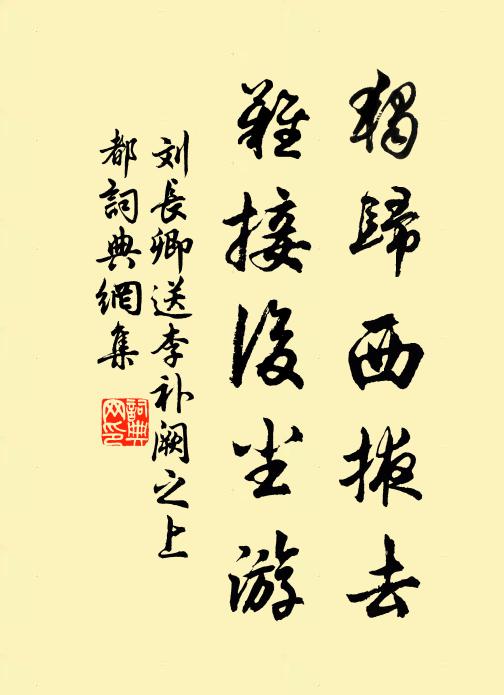 獨歸西掖去
難接後尘游
刘長卿送李补阙之上
都詞典網集
詞典
网印